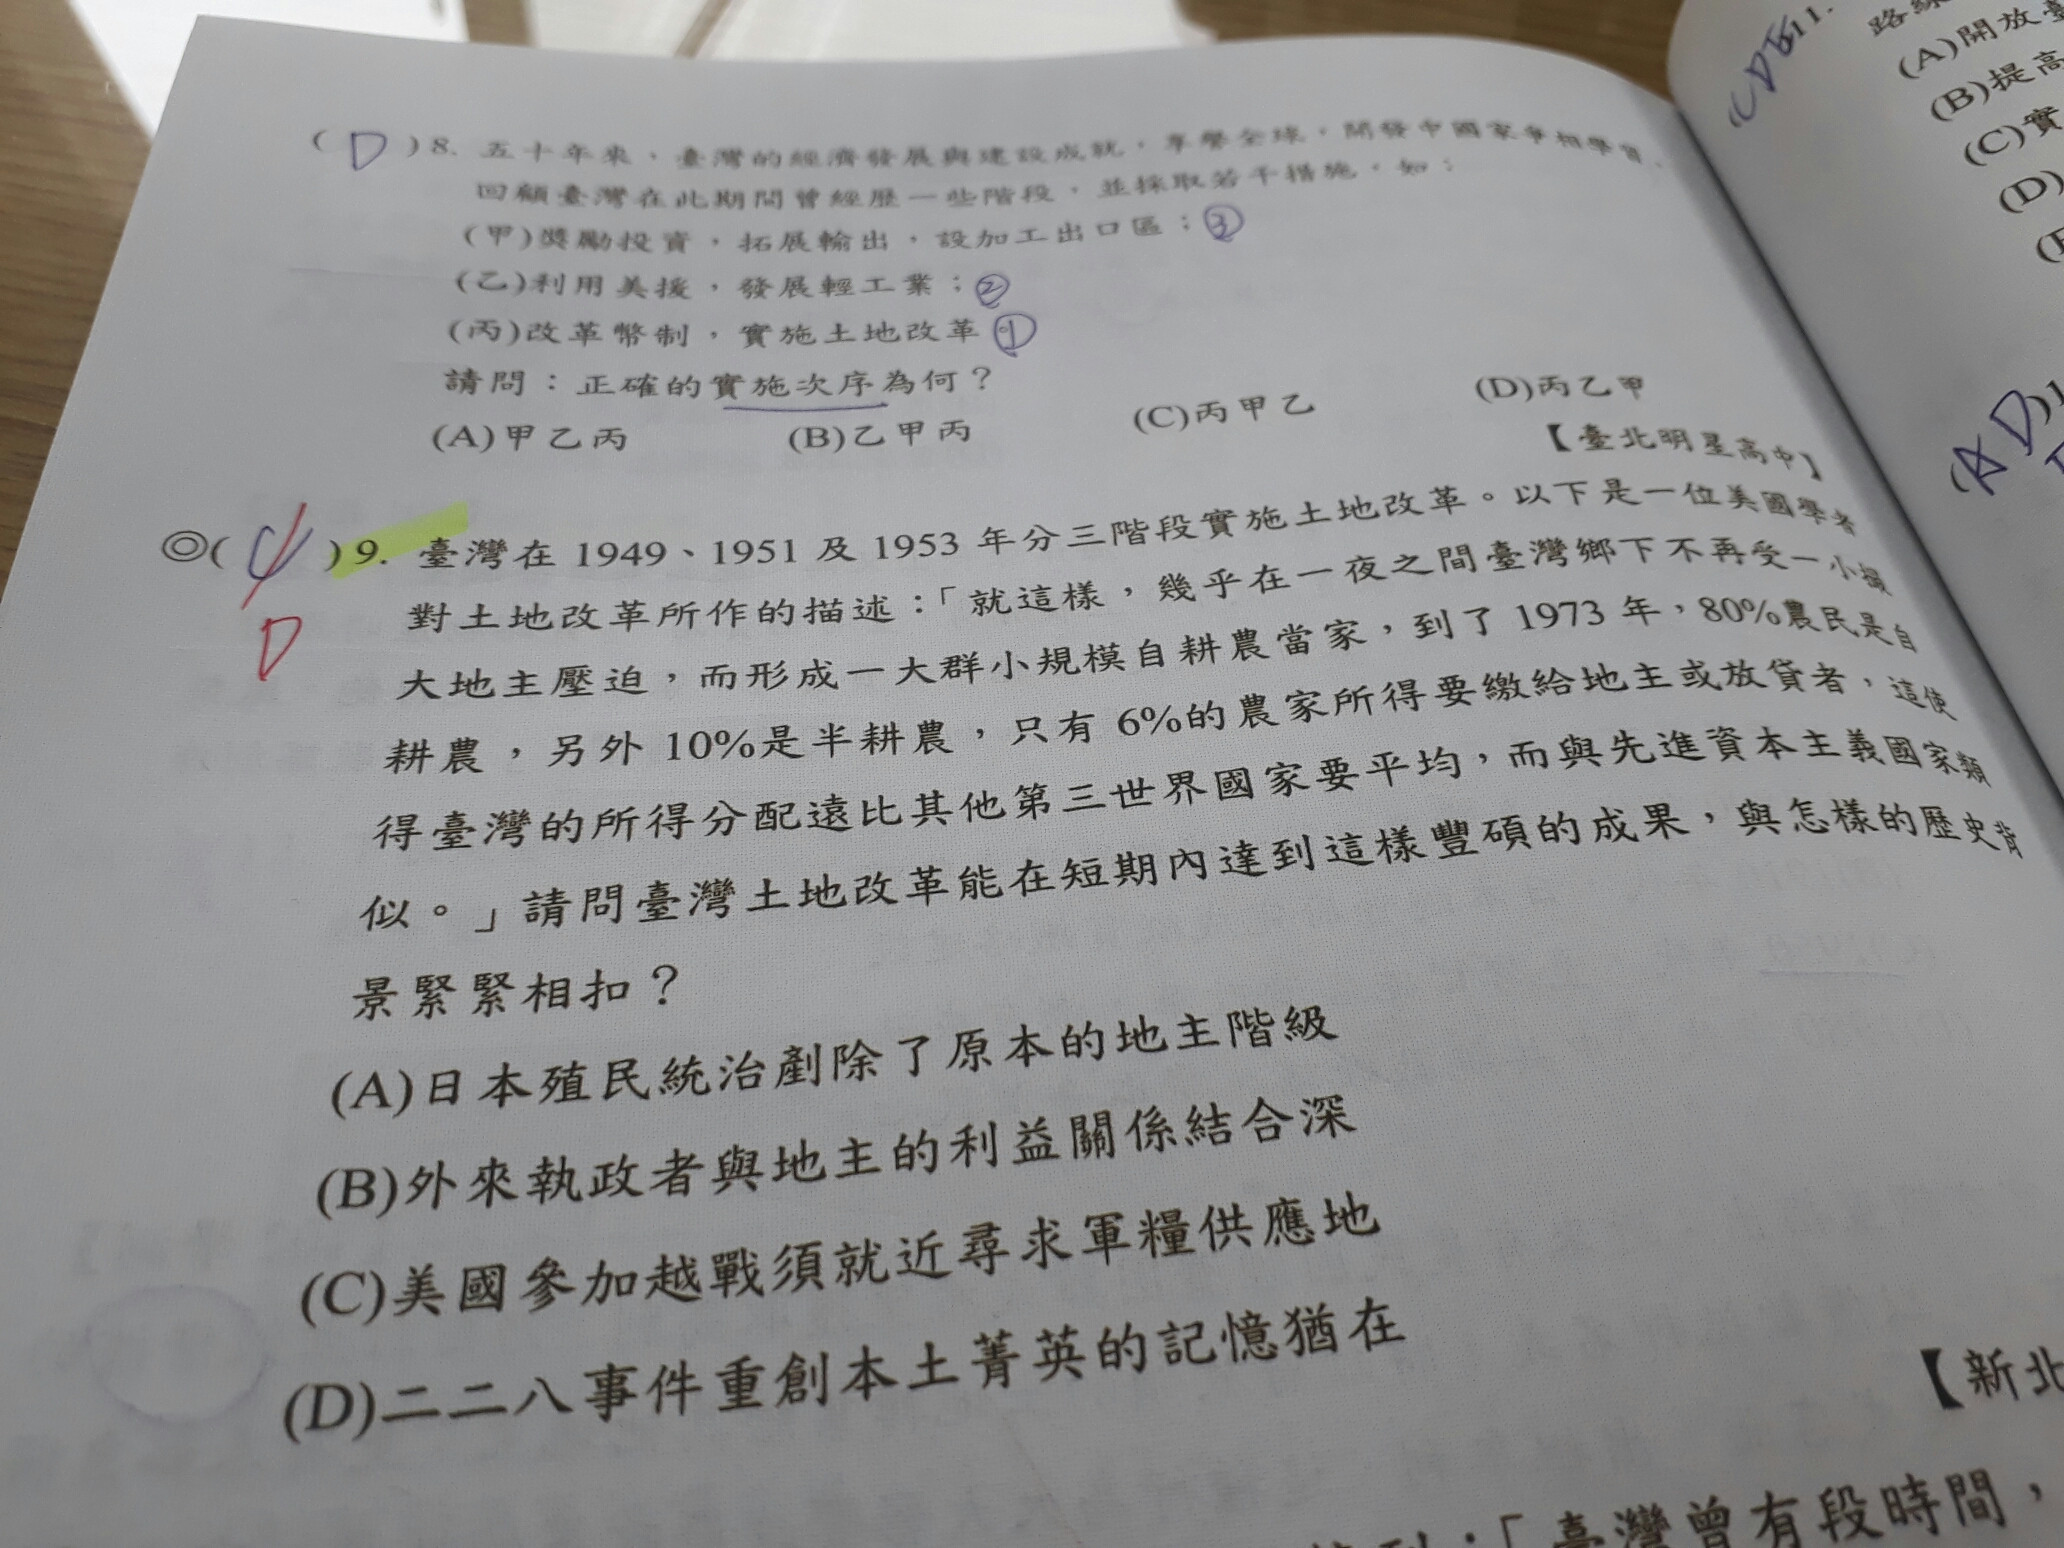 (D)8. 五十年來，臺灣的經濟發展與建設成就，享譽全球，開發中國家爭相學習、
回顧臺灣在此期間曾經歷一些階段，並採取若干措施，如：
(甲)獎勵投資，拓展輸出，設加工出口區；③
(乙)利用美援，發展輕工業；②
(丙)改革幣制，實施土地改革①
請問：正確的實施次序為何？
(A)甲乙丙 (B)乙甲丙 (C)丙甲乙 (D)丙乙甲
【臺北明星高中】
◎(C)9. 臺灣在 1949、1951 及 1953 年分三階段實施土地改革。以下是一位美國學者
D
對土地改革所作的描述：「就這樣，幾乎在一夜之間臺灣鄉下不再受一小撮
大地主壓迫，而形成一大群小規模自耕農當家，到了 1973 年，80%農民是自
耕農，另外 10%是半耕農，只有 6%的農家所得要繳給地主或放貸者，這使
得臺灣的所得分配遠比其他第三世界國家要平均，而與先進資本主義國家類
似。」請問臺灣土地改革能在短期內達到這樣豐碩的成果，與怎樣的歷史背
景緊緊相扣？
(A)日本殖民統治剷除了原本的地主階級
(B)外來執政者與地主的利益關係結合深
(C)美國參加越戰須就近尋求軍糧供應地
(D)二二八事件重創本土菁英的記憶猶在
【新北
「臺灣曾有段時間，
CDE 11.
路線
(A)開放臺
(B)提高
(C)實
(D)
(E
AD)1